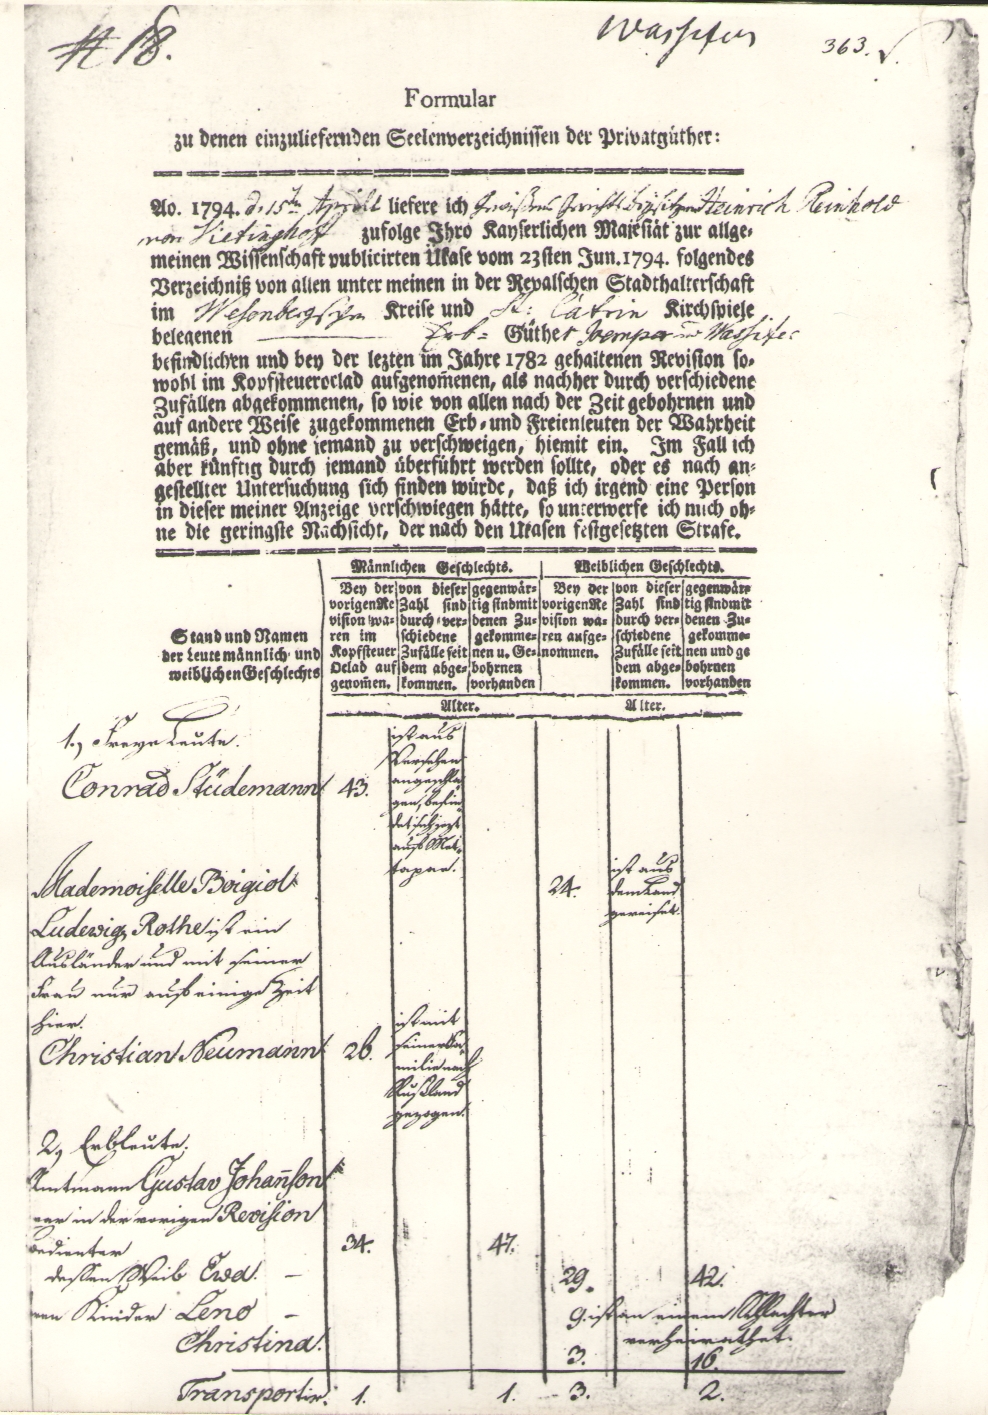 # 18.
Wassifer
363.
Formular
zu denen einzuliefernden Seelenverzeichnissen der Privatgüther:
Ao. 1794. d. 15ten Aprill liefere ich Heinrich Reinhold
von Vietinghoff zufolge Ihro Kayserlichen Majestät zur allge-
meinen Wissenschaft publicirten Ukase vom 23sten Jun. 1794. folgendes
Verzeichniß von allen unter meinen in der Revalschen Stadthalterschaft
im Wesenbergschen Kreise und St: Catrin Kirchspiele
belegenen Erb= Güther
befindlichen und bey der lezten im Jahre 1782 gehaltenen Revision so-
wohl im Kopfsteueroclad aufgenom̄enen, als nachher durch verschiedene
Zufällen abgekommenen, so wie von allen nach der Zeit gebohrnen und
auf andere Weise zugekommenen Erb- und Freienleuten der Wahrheit
gemäß, und ohne jemand zu verschweigen, hiemit ein. Im Fall ich
aber künftig durch jemand überführt werden sollte, oder es nach an-
gestellter Untersuchung sich finden würde, daß ich irgend eine Person
in dieser meiner Anzeige verschwiegen hätte, so unterwerfe ich mich oh-
ne die geringste Nachsicht, der nach den Ukasen festgesetzten Strafe.
Männlichen Geschlechts. Weiblichen Geschlechts.
Stand und Namen
der Leute männlich- und
weiblichen Geschlechts
Bey der
vorigen Re
vision wa-
ren im
Kopfsteuer
Oclad auf
genom̄en.
von dieser
Zahl sind
durch ver-
schiedene
Zufälle seit
dem abge-
kommen.
gegenwär-
tig sind mit
denen Zu-
gekomme-
nen u. Ge-
bohrnen
vorhanden
Bey der
vorigen Re
vision wa-
ren aufge-
nommen.
von dieser
Zahl sind
durch ver-
schiedene
Zufälle seit
dem abge-
kommen.
gegenwär-
tig sind mit
denen Zu-
gekomme-
nen und ge
bohrnen
vorhanden
Alter. Alter.
1., Freye Leute.
Conrad Stüdemann 43.
ist aus
Versehen
angeschla-
gen, befin
det sich jezt
auf Met-
tapae.
Mademoiselle Boigiol 24.
ist aus
dem Land
gereiset.
Ludewig Rothe ist ein
Ausländer und mit seiner
Frau nur auf einige Zeit
hier.
Christian Neumann 26.
ist mit
seiner Fa-
milie nach
Rußland
gezogen.
2, Erbleute.
Amtmann Gustav Johan̄son
war in der vorigen Revision
Bedienter 34. 47.
dessen Weib Ewa. – 29. 42.
Kinder Leno – 9. ist an einem Schlachter
verheirathet.
Christina. 3. 16.
Transportir. 1. 1. 3. 2.